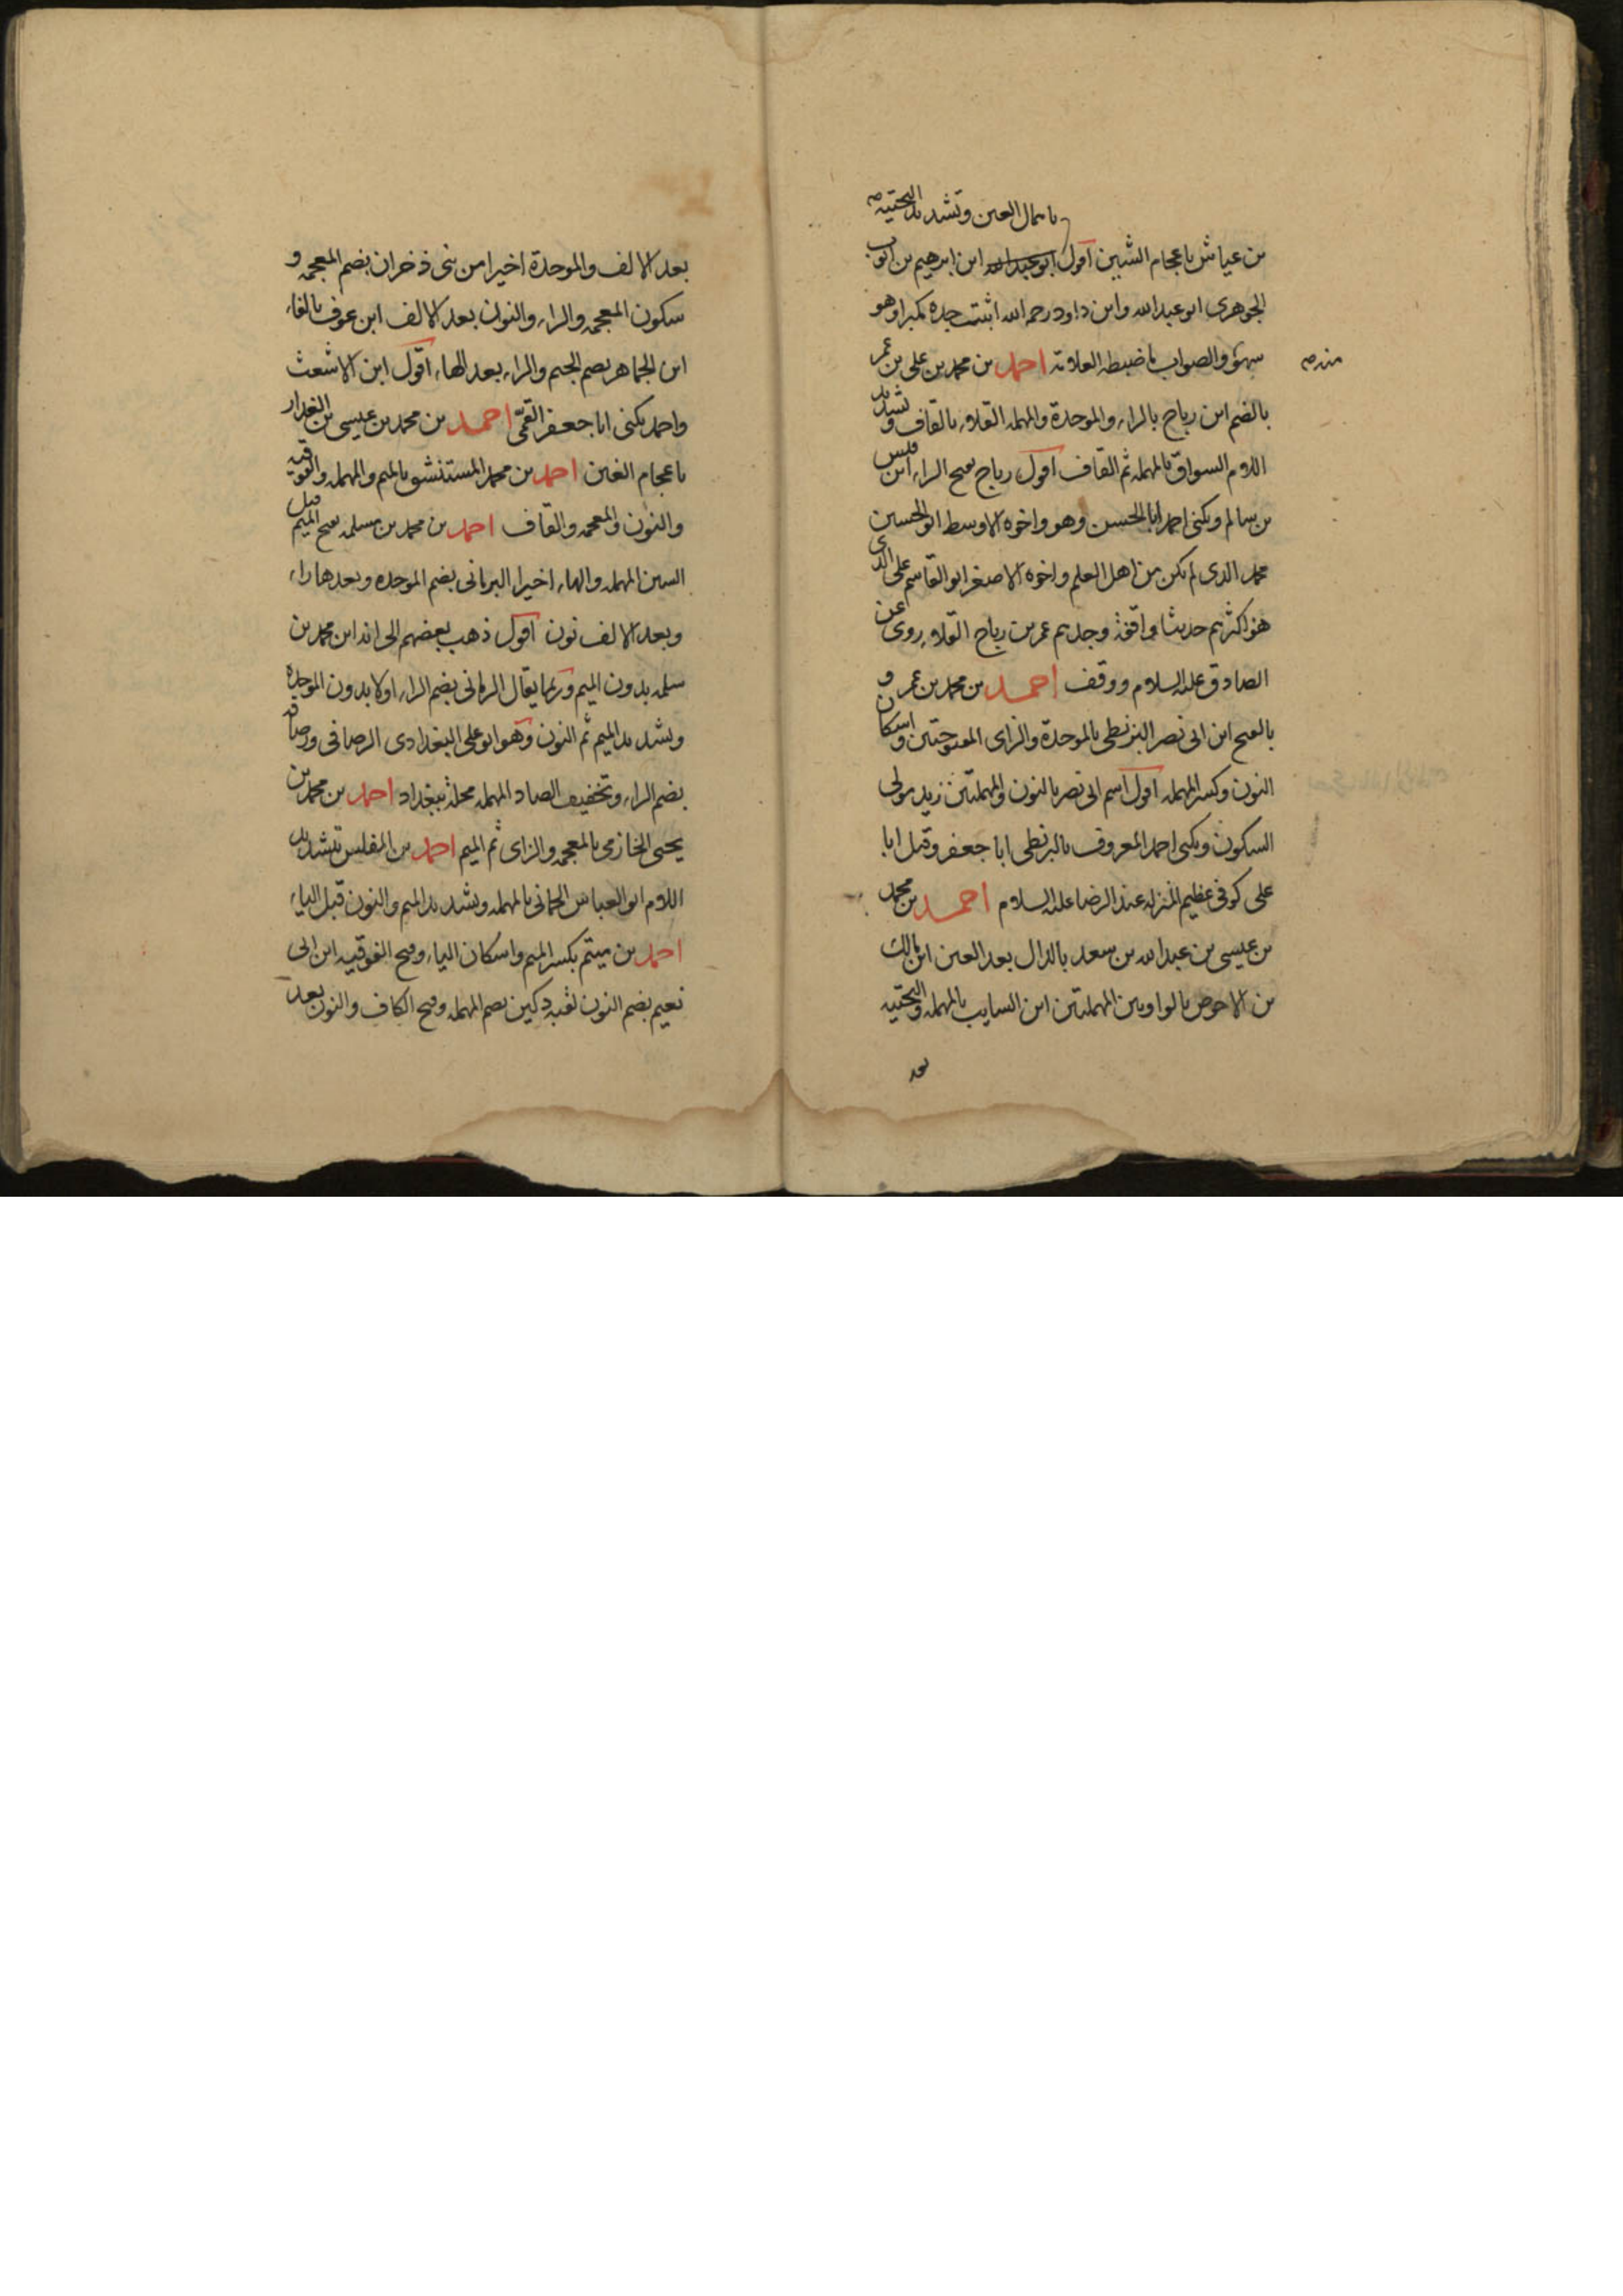 باهمال العين وتشديد التحتية صح
بن عياش باعجام الشين اقول ابو عبدالله ابن ابرهيم بن ايوب
الجوهرى ابو عبدالله وابن داود رحمه الله اثبت جده مكبرا وهو
سهو والصواب ما ضبطه العلامة احمد بن محمد بن على بن عمر
منه ره
بالضم ابن رباح بالراء والموحدة والمهملة القلاء بالقاف وتشديد
اللام السواق بالمهملة ثم القاف اقول رباح بفتح الراء ابن قيس
بن سالم ويكنى احمد ابا الحسن وهو واخوه الاوسط ابو الحسين
محمد الذى لم يكن من اهل العلم واخوه الاصغر ابو القاسم على الذى
هو اكثرهم حديثا واقفة وجدهم عمر بن رباح القلاء روى عن
الصادق عليه السلام ووقف احمد بن محمد بن عمرو
بالفتح ابن ابى نصر البزنطى بالموحدة والزاى المفتوحتين واسكان
النون وكسر المهملة اقول اسم ابى نصر بالنون والمهملتين زيد مولى
السكون ويكنى احمد المعروف بالبزنطى ابا جعفر وقيل ابا
على كوفى عظيم المنزلة عند الرضا عليه السلام احمد بن محمد
بن عيسى بن عبدالله بن سعد بالدال بعد العين ابن مالك
بن الاحوص بالواو بين المهملتين ابن السايب بالمهملة والتحتية
بعد
بعد الالف والموحدة اخيرا من بنى ذخران بضم المعجمة و
سكون المعجمة والراء والنون بعد الالف ابن عوف بالفاء
ابن الجماهر بضم الجيم والراء بعد الهاء اقول ابن الاشعث
واحمد يكنى ابا جعفر القمى احمد بن محمد بن عيسى بن الغراد
باعجام الغين احمد بن محمد المستنشق بالميم والمهملة والفوقية
والنون والمعجمة والقاف احمد بن محمد بن مسلمة بفتح الميم قبل
السين المهملة والهاء اخيرا البرمانى بضم الموحدة وبعدها راء
وبعد الالف نون اقول ذهب بعضهم الى انه ابن محمد بن
سلمة بدون الميم وربما يقال الرمانى بضم الراء اولا بدون الموحدة
وتشديد الميم ثم النون وهو ابو على البغدادى الرصافى ورصافه
بضم الراء وتخفيف الصاد المهملة محلة ببغداد احمد بن محمد بن
يحيى الخازمى بالمعجمة والزاى ثم الميم احمد بن المغلس بتشديد
اللام ابو العباس الحمانى بالمهملة وتشديد الميم والنون قبل الياء
احمد بن ميتم بكسر الميم واسكان الياء وفتح الفوقية ابن ابى
نعيم بضم النون لقبه دكين بضم المهملة وفتح الكاف والنون بعد